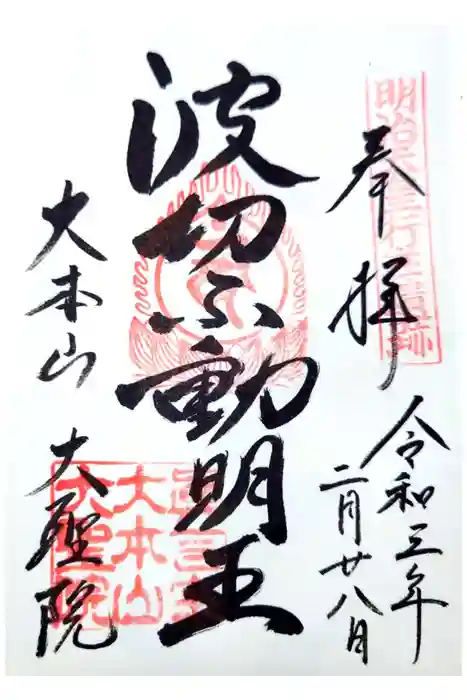 奉拝
令和三年
二月廿八月
波切不動明王
大本山
大聖院
明治天皇行在所旧跡
真言宗
大本山
大聖院